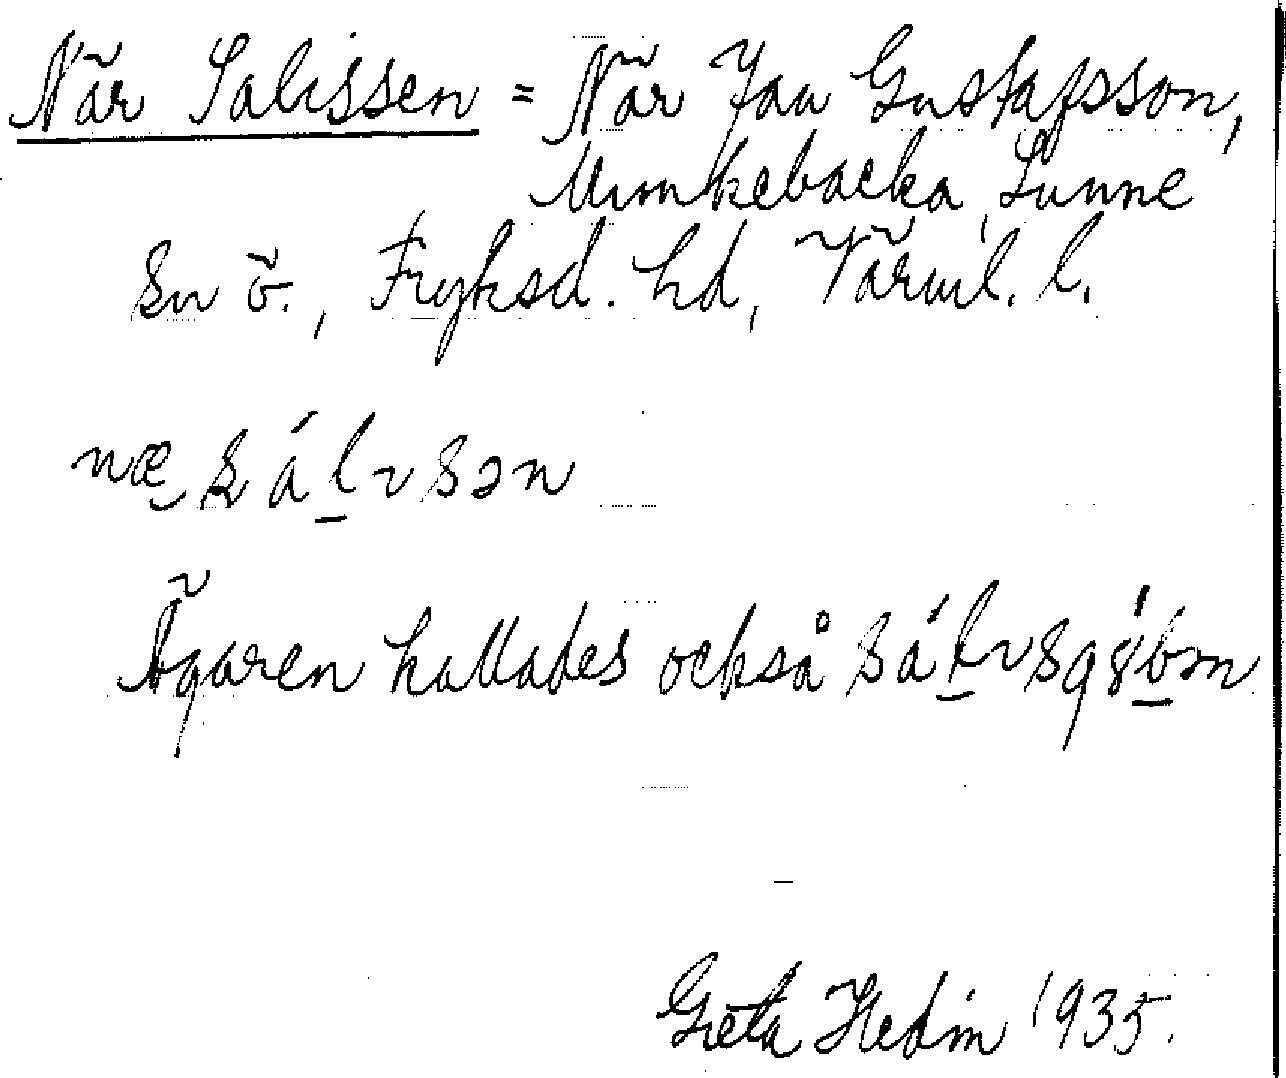 När Salissen = När Jan Gustafsson,
Munkebacka, Sunne
sn ö., Fryksd. hd, Värml. l.
næ sálɩsən
Ägaren kallades också
Greta Hedin 1935.